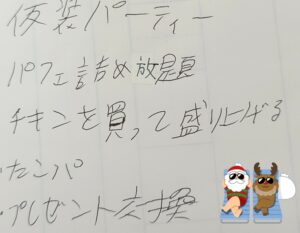 仮装パーティー
パフェ詰め放題
チキンを買って盛り上げる
・たこパ
・プレゼント交換